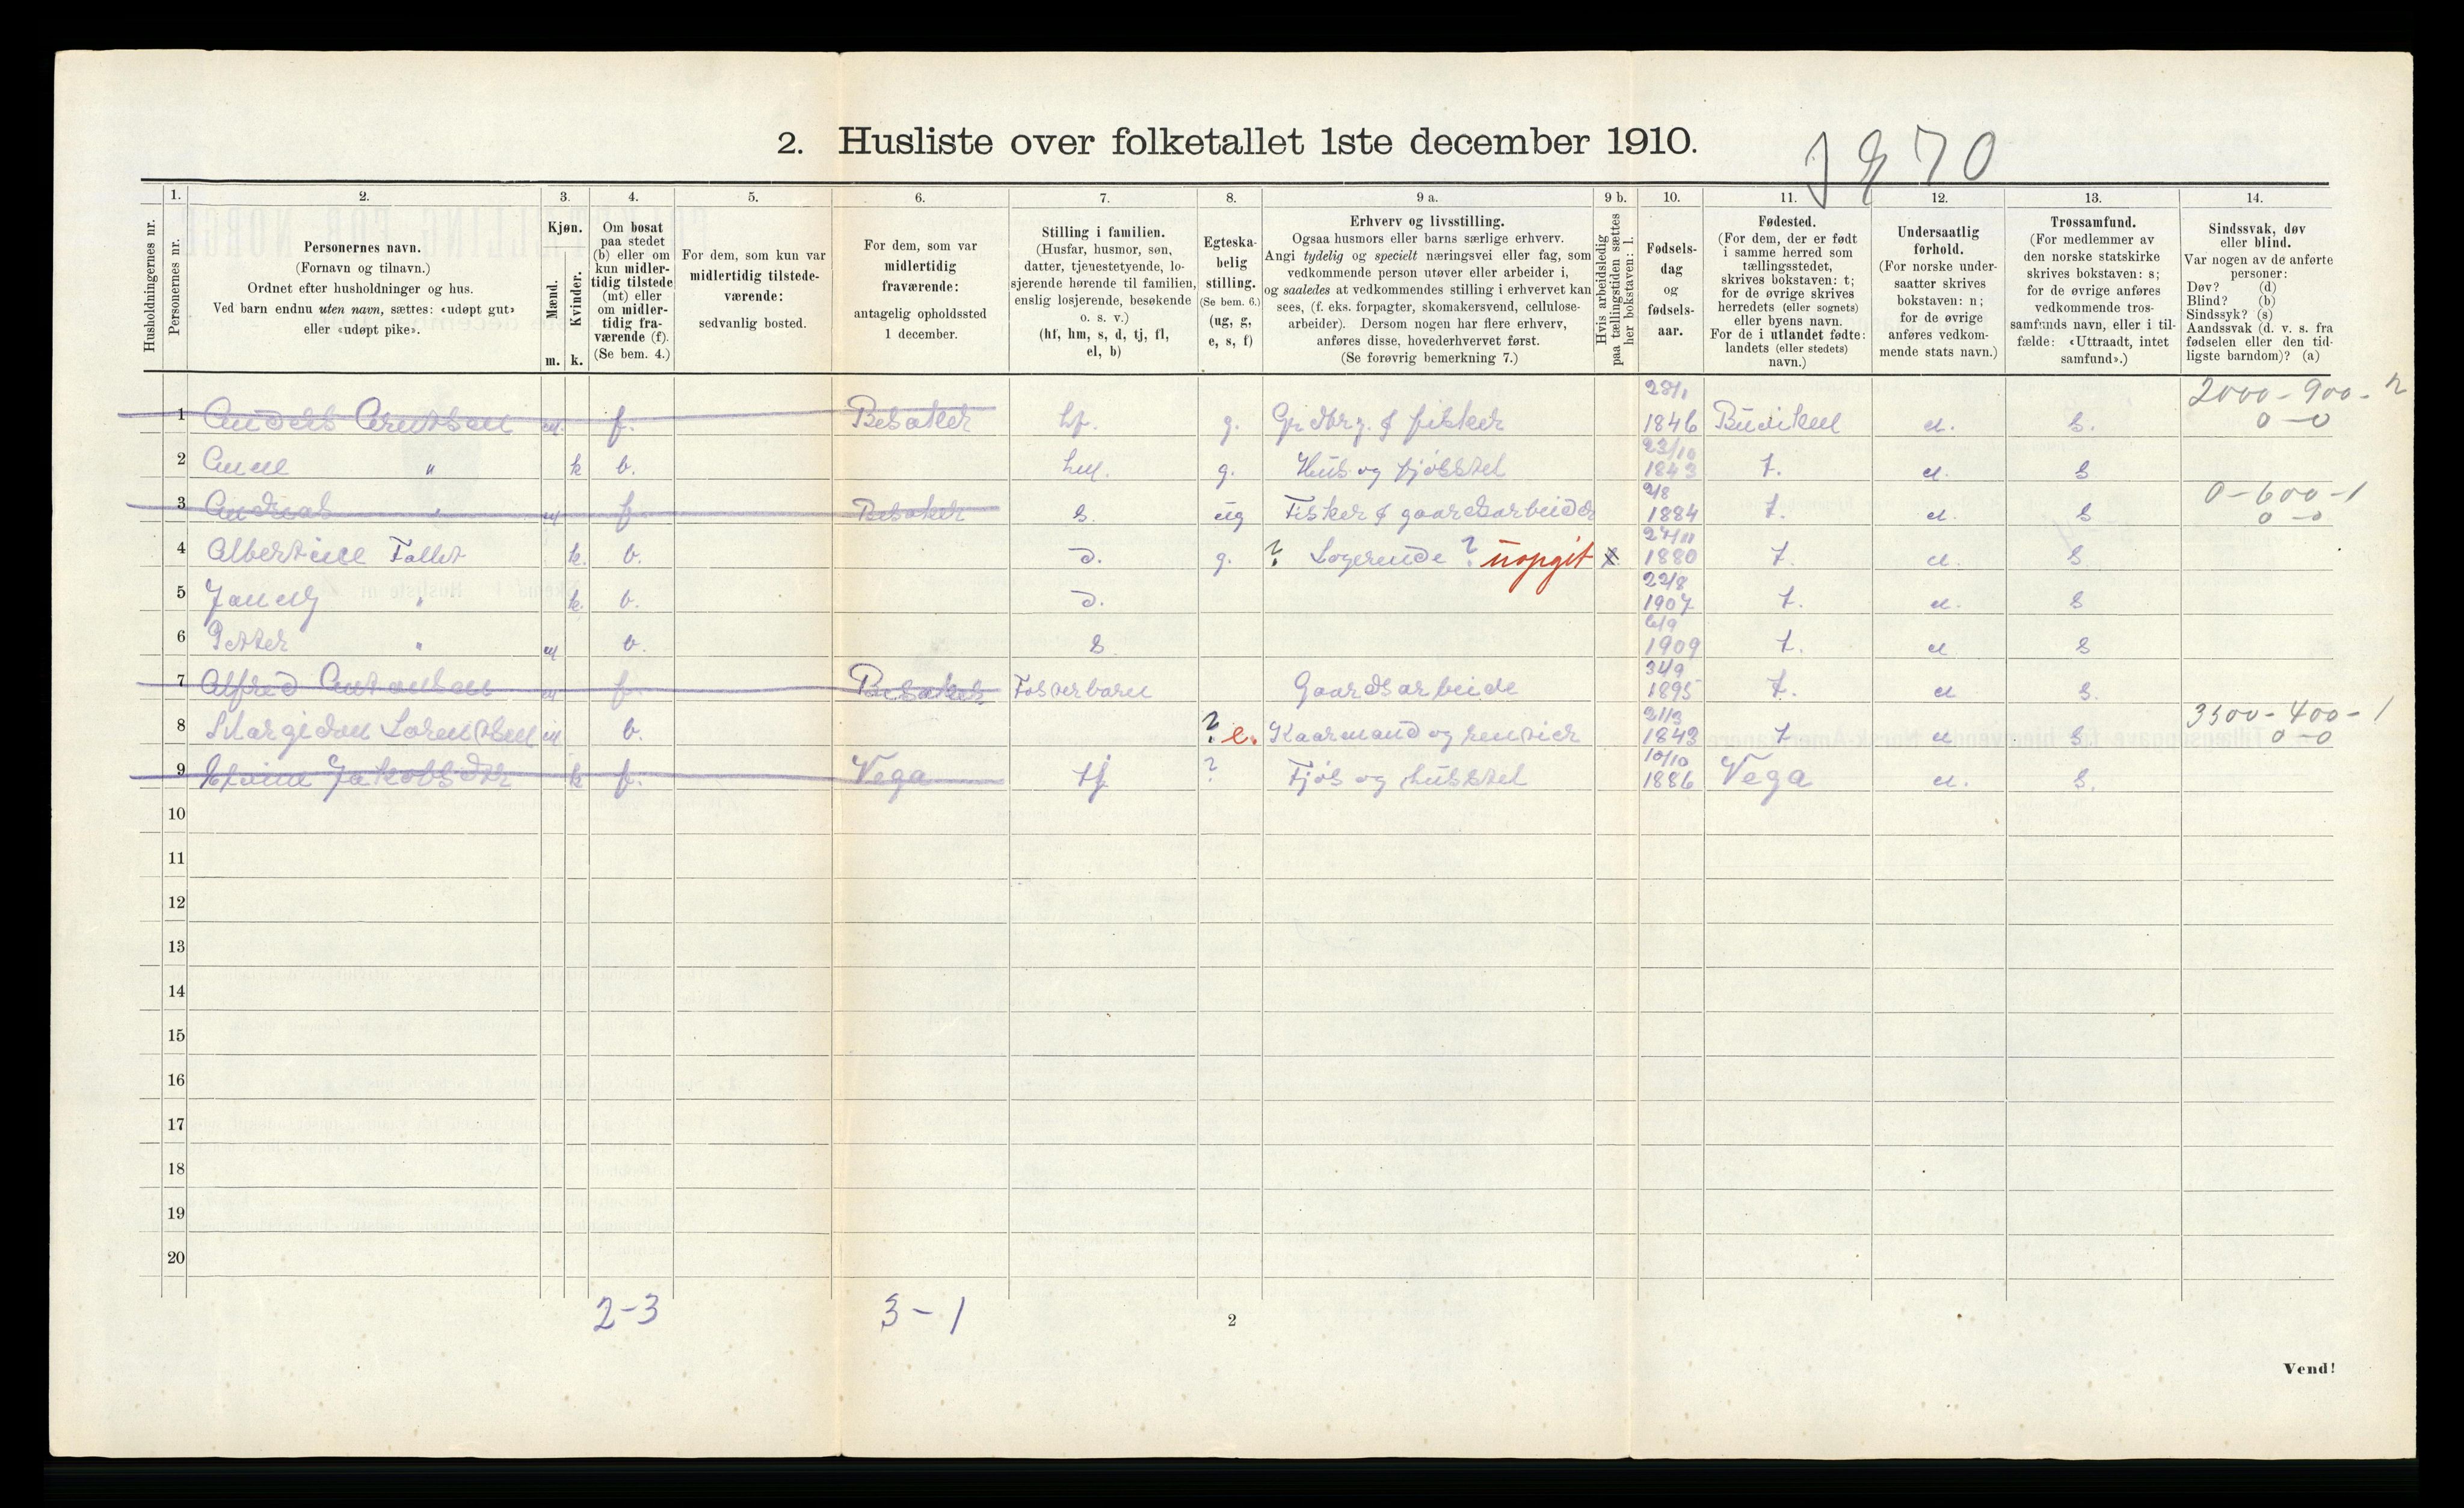 2. Husliste over folketallet 1ste december 1910.
1870
1. 2. 3. 4. 5. 6. 7. 8. 9 a. 9 b. 10. 11. 12. 13. 14.
Husholdningernes nr.
Personernes nr.
Personernes navn.
(Fornavn og tilnavn.)
Ordnet efter husholdninger og hus.
Ved barn endnu uten navn, sættes: «udøpt gut»
eller «udøpt pike».
Kjøn.
Mænd.
Kvinder.
m. k.
Om bosat
paa stedet
(b) eller om
kun midler-
tidig tilstede
(mt) eller
om midler-
tidig fra-
værende (f).
(Se bem. 4.)
For dem, som kun var
midlertidig tilstede-
værende:
sedvanlig bosted.
For dem, som var
midlertidig
fraværende:
antagelig opholdssted
1 december.
Stilling i familien.
(Husfar, husmor, søn,
datter, tjenestetyende, lo-
sjerende hørende til familien,
enslig losjerende, besøkende
o. s. v.)
(hf, hm, s, d, tj, fl,
el, b)
Egteska-
belig
stilling.
(Se bem. 6.)
(ug, g,
e, s, f)
Erhverv og livsstilling.
Ogsaa husmors eller barns særlige erhverv.
Angi tydelig og specielt næringsvei eller fag, som
vedkommende person utøver eller arbeider i,
og saaledes at vedkommendes stilling i erhvervet kan
sees, (f. eks. forpagter, skomakersvend, cellulose-
arbeider). Dersom nogen har flere erhverv,
anføres disse, hovederhvervet først.
(Se forøvrig bemerkning 7.)
Hvis arbeidsledig
paa tællingstiden sættes
her bokstaven: l.
Fødsels-
dag
og
fødsels-
aar.
Fødested.
(For dem, der er født
i samme herred som
tællingsstedet,
skrives bokstaven: t;
for de øvrige skrives
herredets (eller sognets)
eller byens navn.
For de i utlandet fødte:
landets (eller stedets)
navn.)
Undersaatlig
forhold.
(For norske under-
saatter skrives
bokstaven: n;
for de øvrige
anføres vedkom-
mende stats navn.)
Trossamfund.
(For medlemmer av
den norske statskirke
skrives bokstaven: s;
for de øvrige anføres
vedkommende tros-
samfunds navn, eller i til-
fælde: «Uttraadt, intet
samfund».)
Sindssvak, døv
eller blind.
Var nogen av de anførte
personer:
Døv? (d)
Blind? (b)
Sindssyk? (s)
Aandssvak (d. v. s. fra
fødselen eller den tid-
ligste barndom)? (a)
1 Anders Arntsen m. f. Besaker hf. g. Grdbr. & fisker 28/1 1846 n. s. 2000-900-2 0-0
2 Anne " k b. hm. g. Hus og fjøsstel 23/10 1843 t. n. s
3 Andreas " m f. Besaker s. ug Fisker & gaardsarbeider 9/8 1884 t. n. s 0-600-1 0-0
4 Albertine k. b. d. g. ? Logerende ? uopgit 27/11 1880 t. n. s.
5 " k. b. d. 22/8 1907 t. n. s
6 Petter " m b. s 6/9 1909 t. n s
7 Alfred Antonsen m f. Besaker Fosterbarn Gaardsarbeide 1895 t. n s.
8 Margidon Lorentsen m b. ? e. Kaarmand og rentier 21/3 1843 t n s. 3500-400-1 0-0
9 Jakobsdtr k f. Vega tj ? Fjøs og husstel 10/10 1886 Vega n. s.
10
11
12
13
14
15
16
17
18
19
20
2-3 3-1
2
Vend!